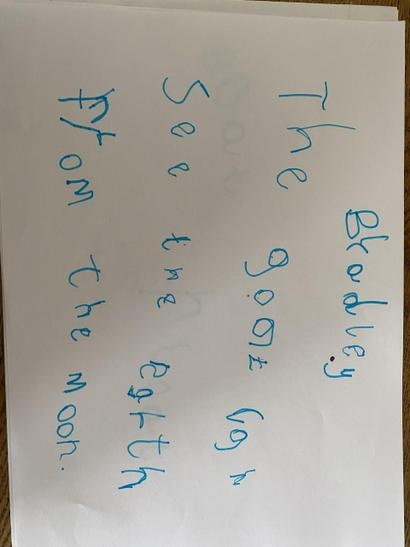 Bradley
The goat can
See the earth
from the moon.